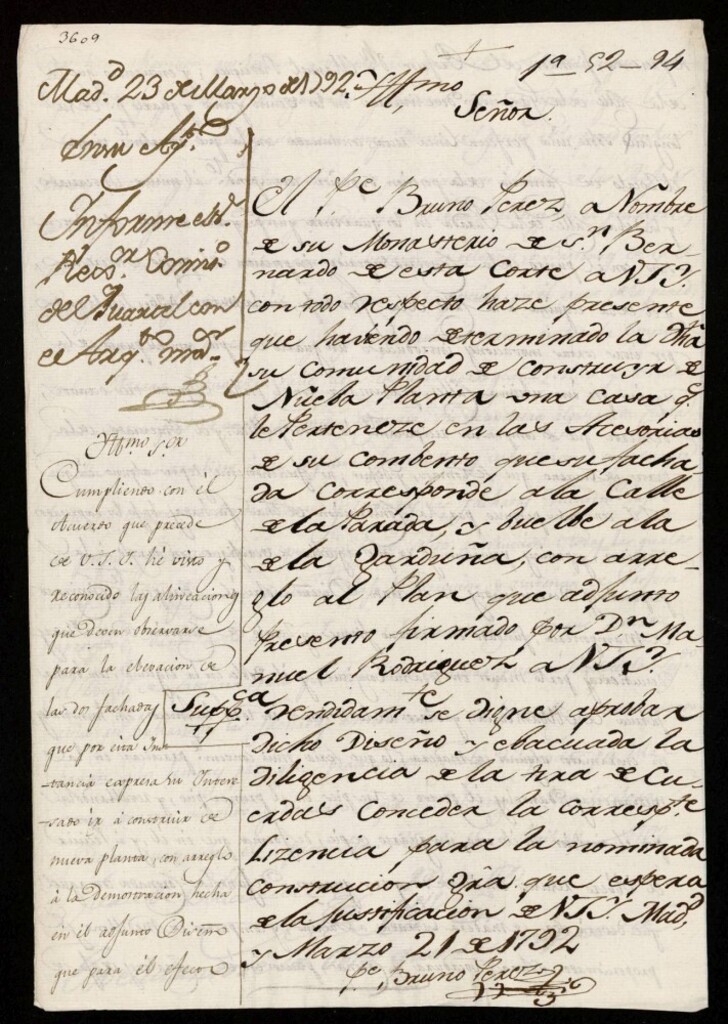 3609
1ª 52-94
Mad.d 23 de Marzo de 1792.
Yllmo
Señor.
En su Ay.to
Informe el S.r
Reg.or Comis.o
del Quartel con
el Arq.to m.or
El P.e Bruno Perez, a Nombre
de su Monasterio de S.n Ber-
nardo de esta Corte a VSY.
con todo respecto haze presente
que haviendo determinado la dha
su comunidad de construyr de
Nueba Planta una casa q.e
le Perteneze en las Acesorias
de su combento que su facha-
da corresponde a la Calle
de la Parada, y buelbe a la
de la Garduña, con arre-
glo al Plan que adjunto
Presento firmado por D.n Ma-
nuel Rodriguez a VSY.
Supp.ca rendidam.te se digne aprobar
dicho Diseño y ebacuada la
diligencia de la tira de cu-
erdas conceder la corresp.te
Lizencia para la nominada
construcion Gra. que espera
de la justificacion de VSY. Mad.d
y Marzo 21 de 1792
P.e Bruno Perez
Yllmo S.or
Cumpliendo con el
Acuerdo que precede
de V.S.I. hé visto y
reconocido las alineaciones
que deven observarse
para la elevacion de
las dos fachadas
que por esta Ins-
tancia expresa su Intere-
sado ir à construir de
nueva planta, con arreglo
à la demostracion hecha
en el adjunto Diseño
que para el efecto